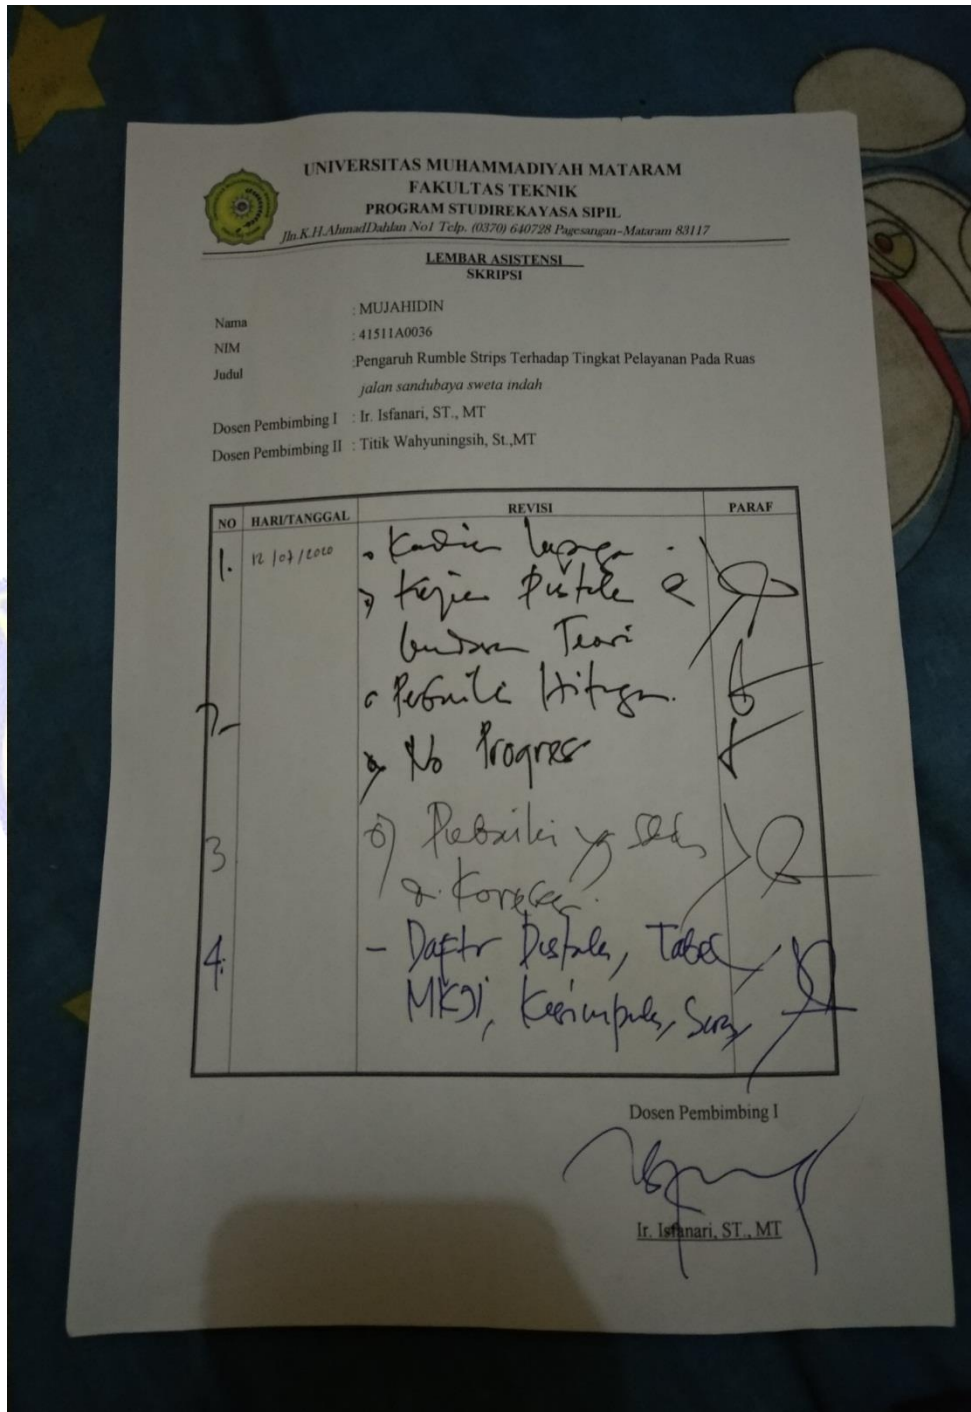 UNIVERSITAS MUHAMMADIYAH MATARAM
FAKULTAS TEKNIK
PROGRAM STUDIREKAYASA SIPIL
Jln.K.H.AhmadDahlan No1 Telp. (0370) 640728 Pagesangan-Mataram 83117
LEMBAR ASISTENSI
SKRIPSI
Nama : MUJAHIDIN
NIM : 41511A0036
Judul :Pengaruh Rumble Strips Terhadap Tingkat Pelayanan Pada Ruas
jalan sandubaya sweta indah
Dosen Pembimbing I : Ir. Isfanari, ST., MT
Dosen Pembimbing II : Titik Wahyuningsih, St.,MT
NO HARI/TANGGAL REVISI PARAF
1. 12/07/2020
Teori
2
No Progres
3
4. - Daftr Pustaka, Tabel
MKJI, Kesimpulan, Saran
Dosen Pembimbing I
Ir. Isfanari, ST., MT